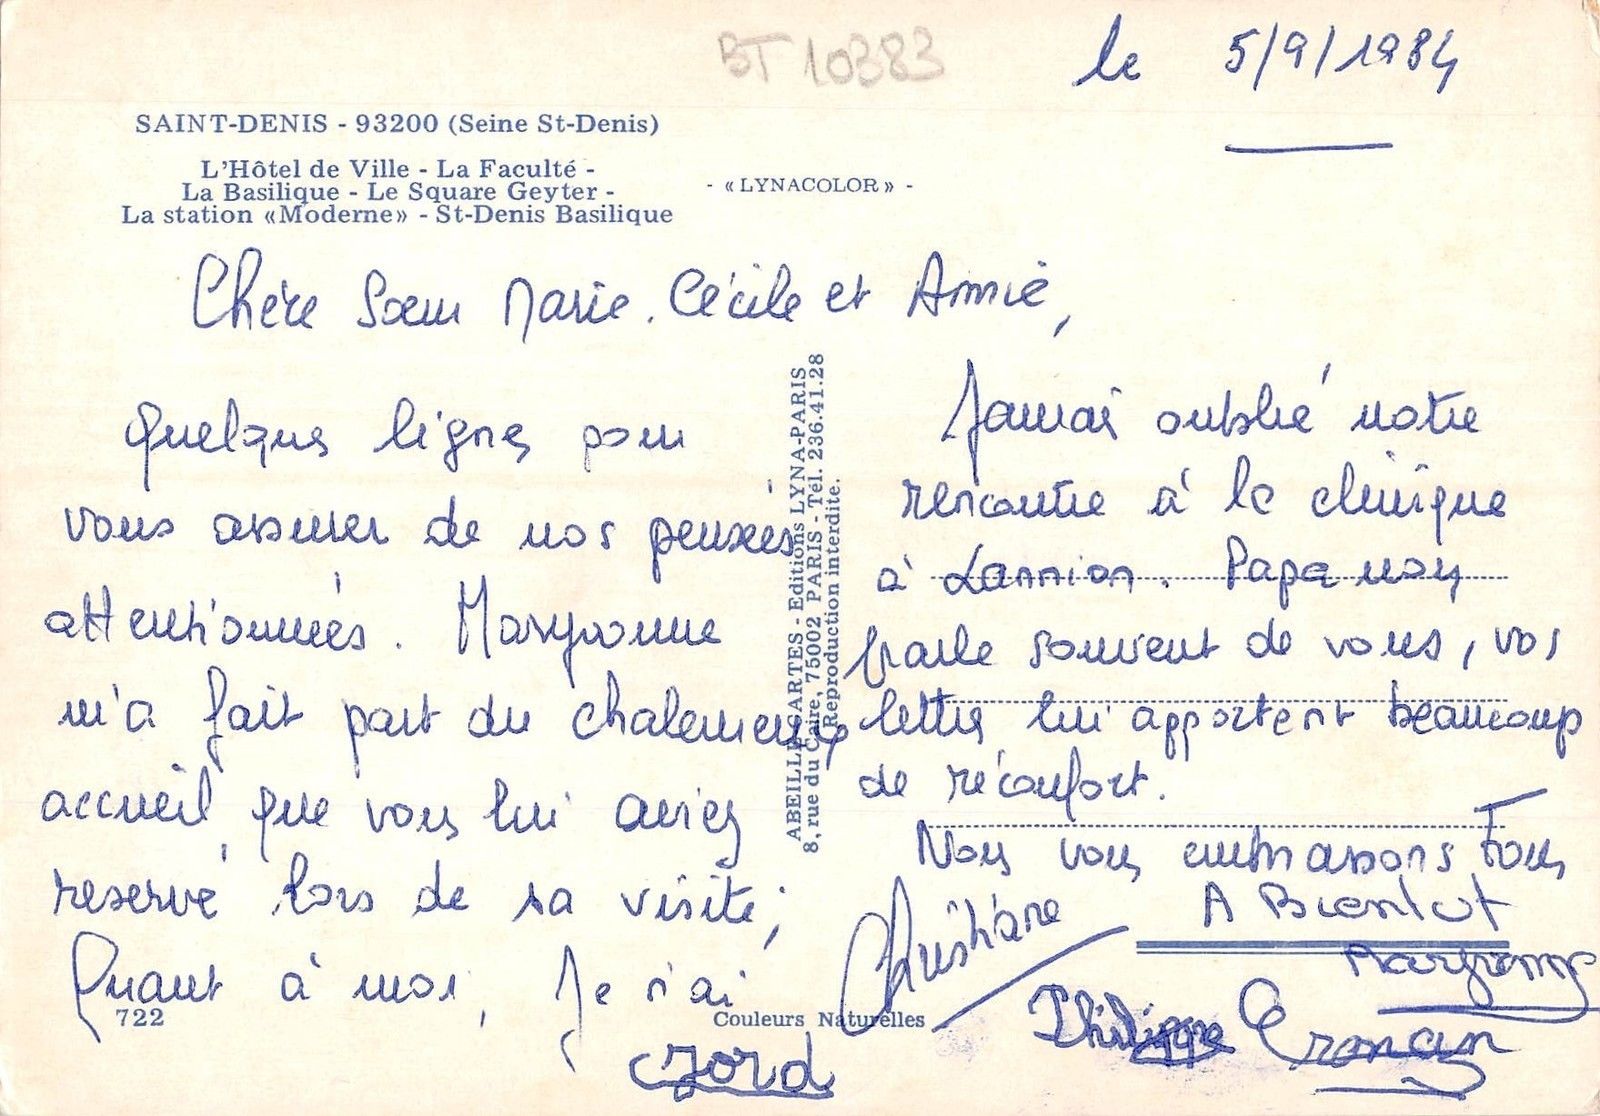 BT 10383
le 5/9/1984
SAINT-DENIS - 93200 (Seine St-Denis)
L'Hôtel de Ville - La Faculté -
La Basilique - Le Square Geyter -
La station «Moderne» - St-Denis Basilique
- « LYNACOLOR » -
Chère Sœur Marie.Cécile et Annie,
Quelques lignes pour
vous assurer de nos pensées
attentionnées. Maryvonne
m'a fait part du chaleureux
accueil que vous lui aviez
reservé lors de sa visite;
Quant à moi, Je n'ai
Jamais oublié notre
rencontre à la clinique
à Lannion. Papa nous
parle souvent de vous, vos
lettres lui apportent beaucoup
de réconfort.
Nous vous embrassons Tous
A Bientot
Christiane
Maryvonne
Philippe
ABEILLE-CARTES - Editions LYNA-PARIS
8, rue du Caire, 75002 PARIS - Tél. 236.41.28
Reproduction interdite.
722
Couleurs Naturelles